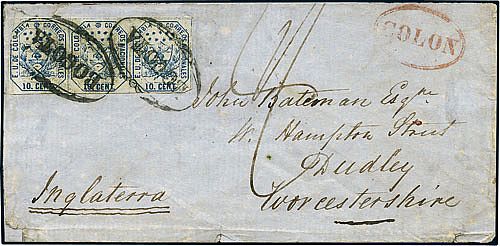 E.U. DE COLOMBIA CORREOS NACIONALES
10. CENT
10. CENT
10. CENT
BOGOTA
BOGOTA
COLON
John Bateman Esqre
W. Hampton Street
Dudley
Worcestershire
Inglaterra